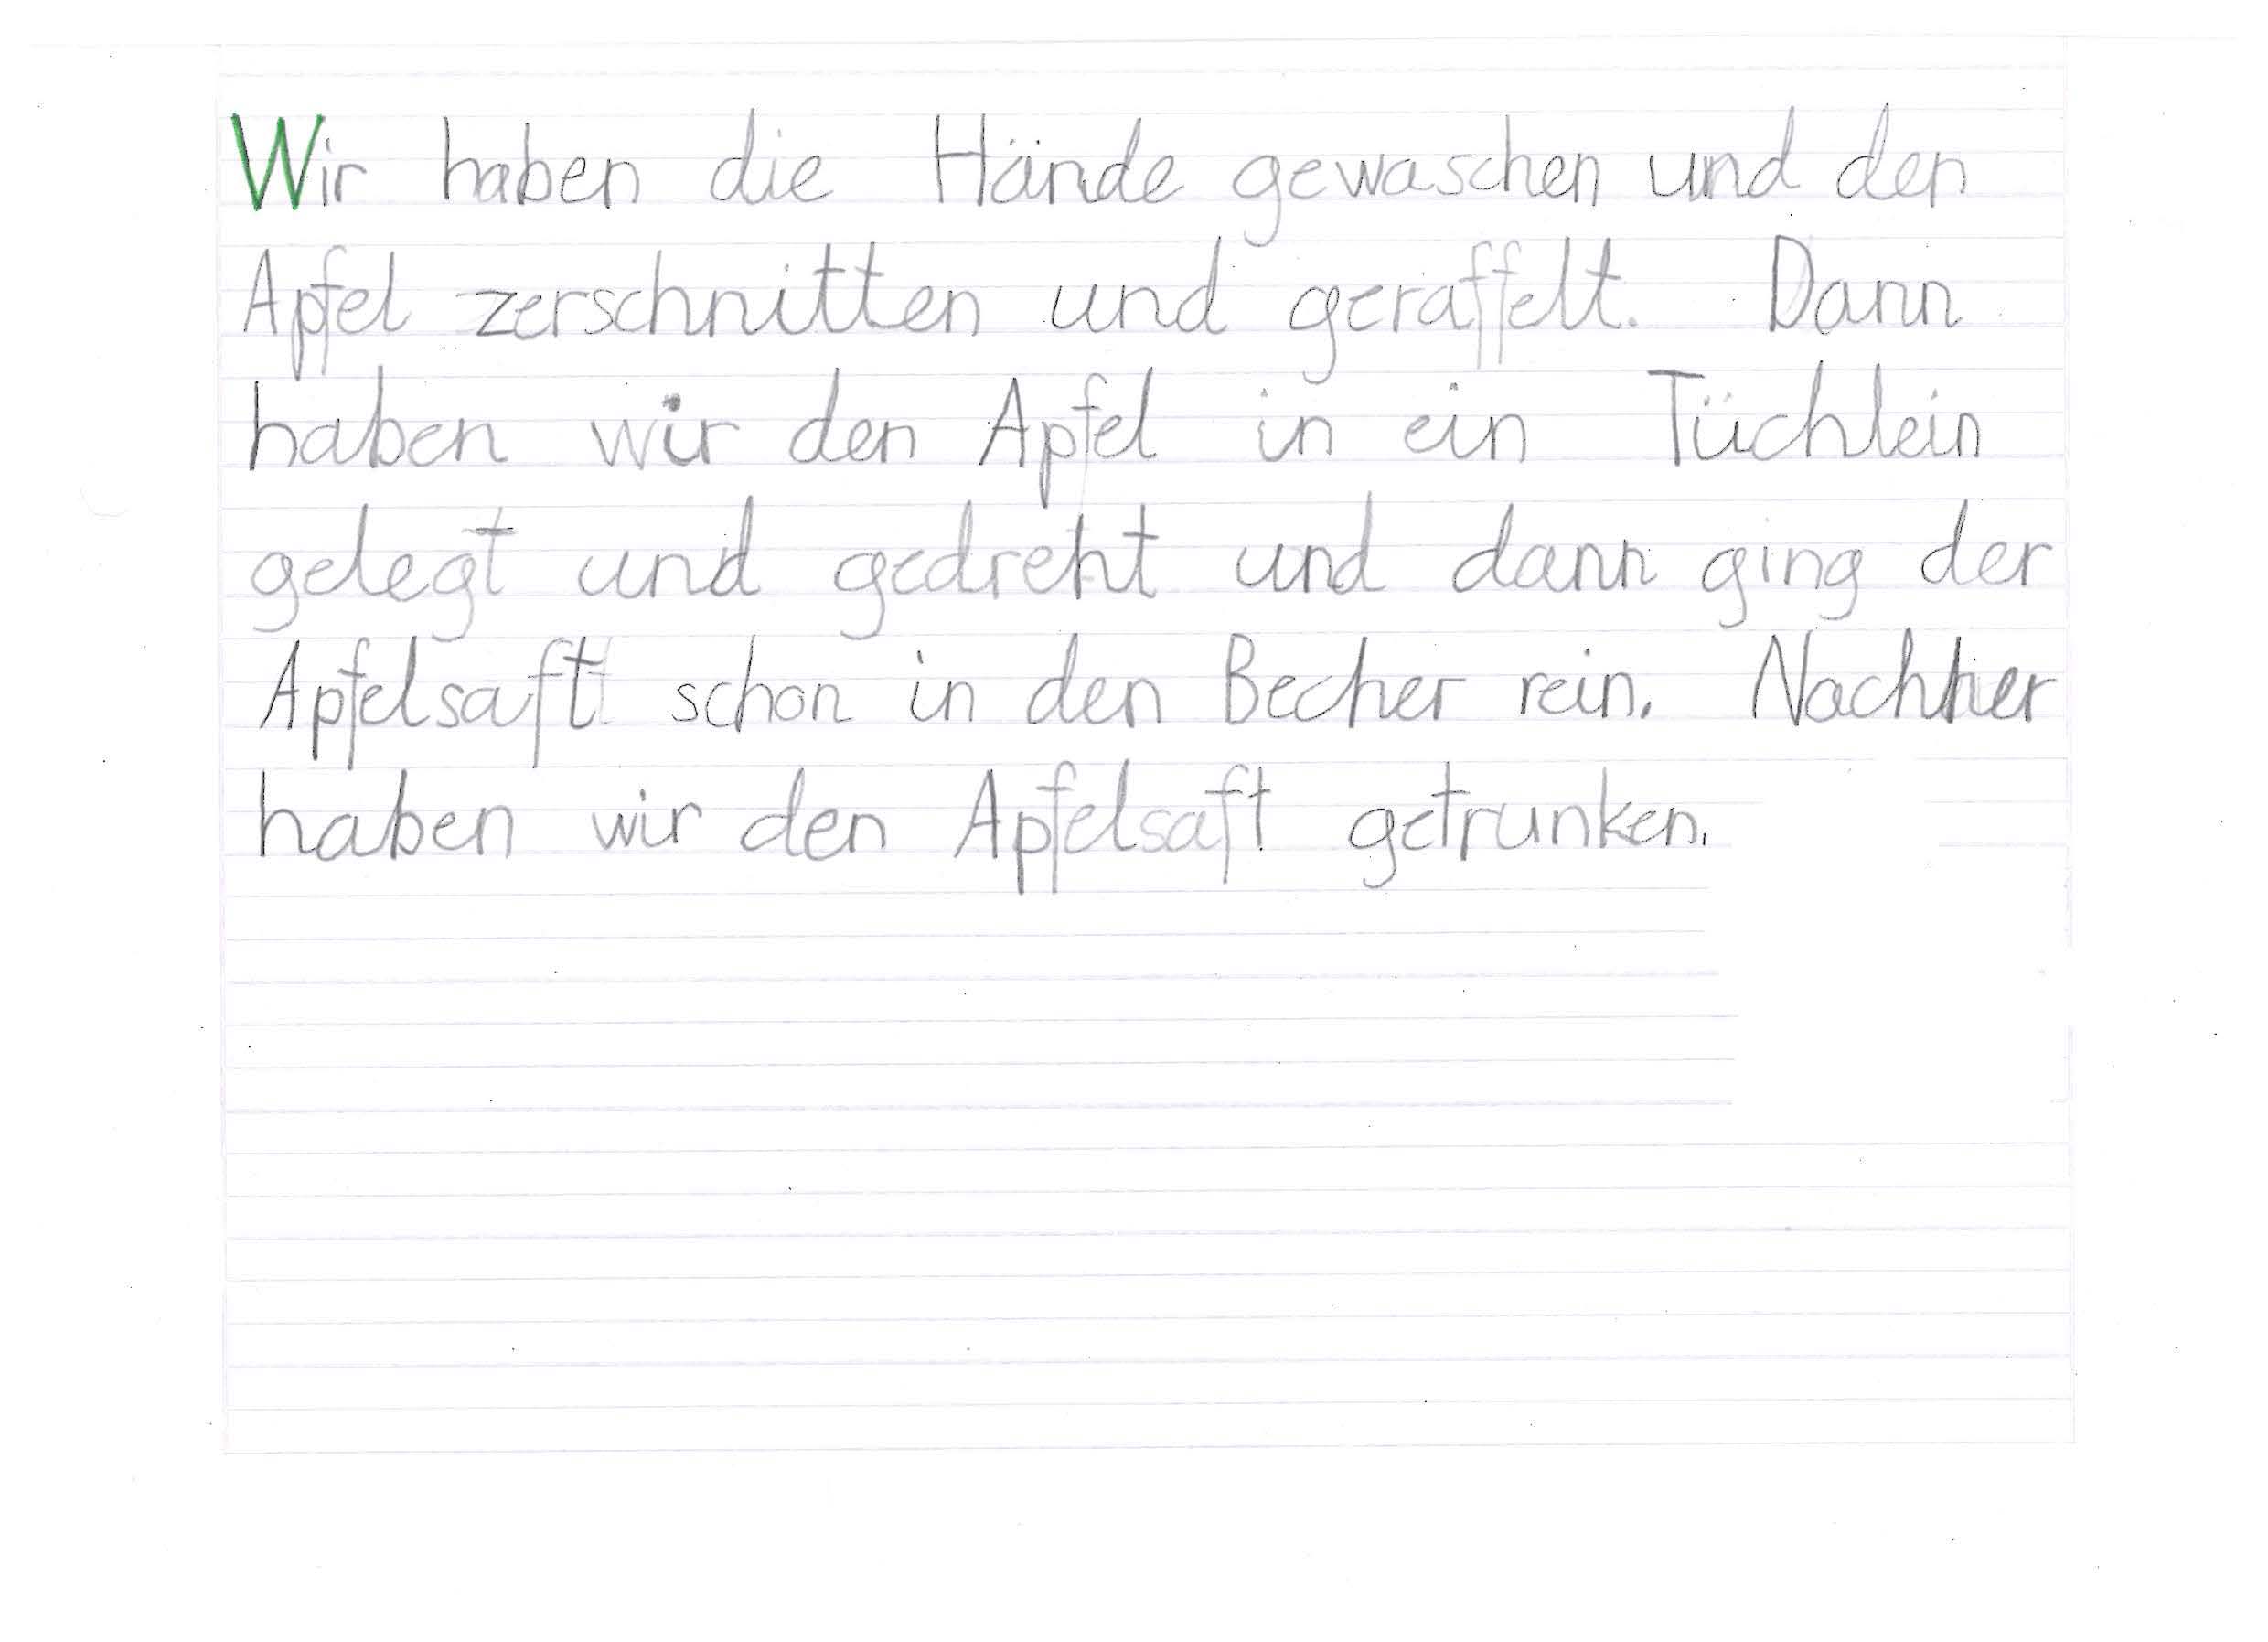 Wir haben die Hände gewaschen und den
Apfel zerschnitten und geraffelt. Dann
haben wir den Apfel in ein Tüchlein
gelegt und gedreht und dann ging der
Apfelsaft schon in den Becher rein. Nachher
haben wir den Apfelsaft getrunken.